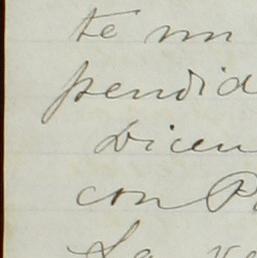 te un
pendid
Dicen
con P
La ve